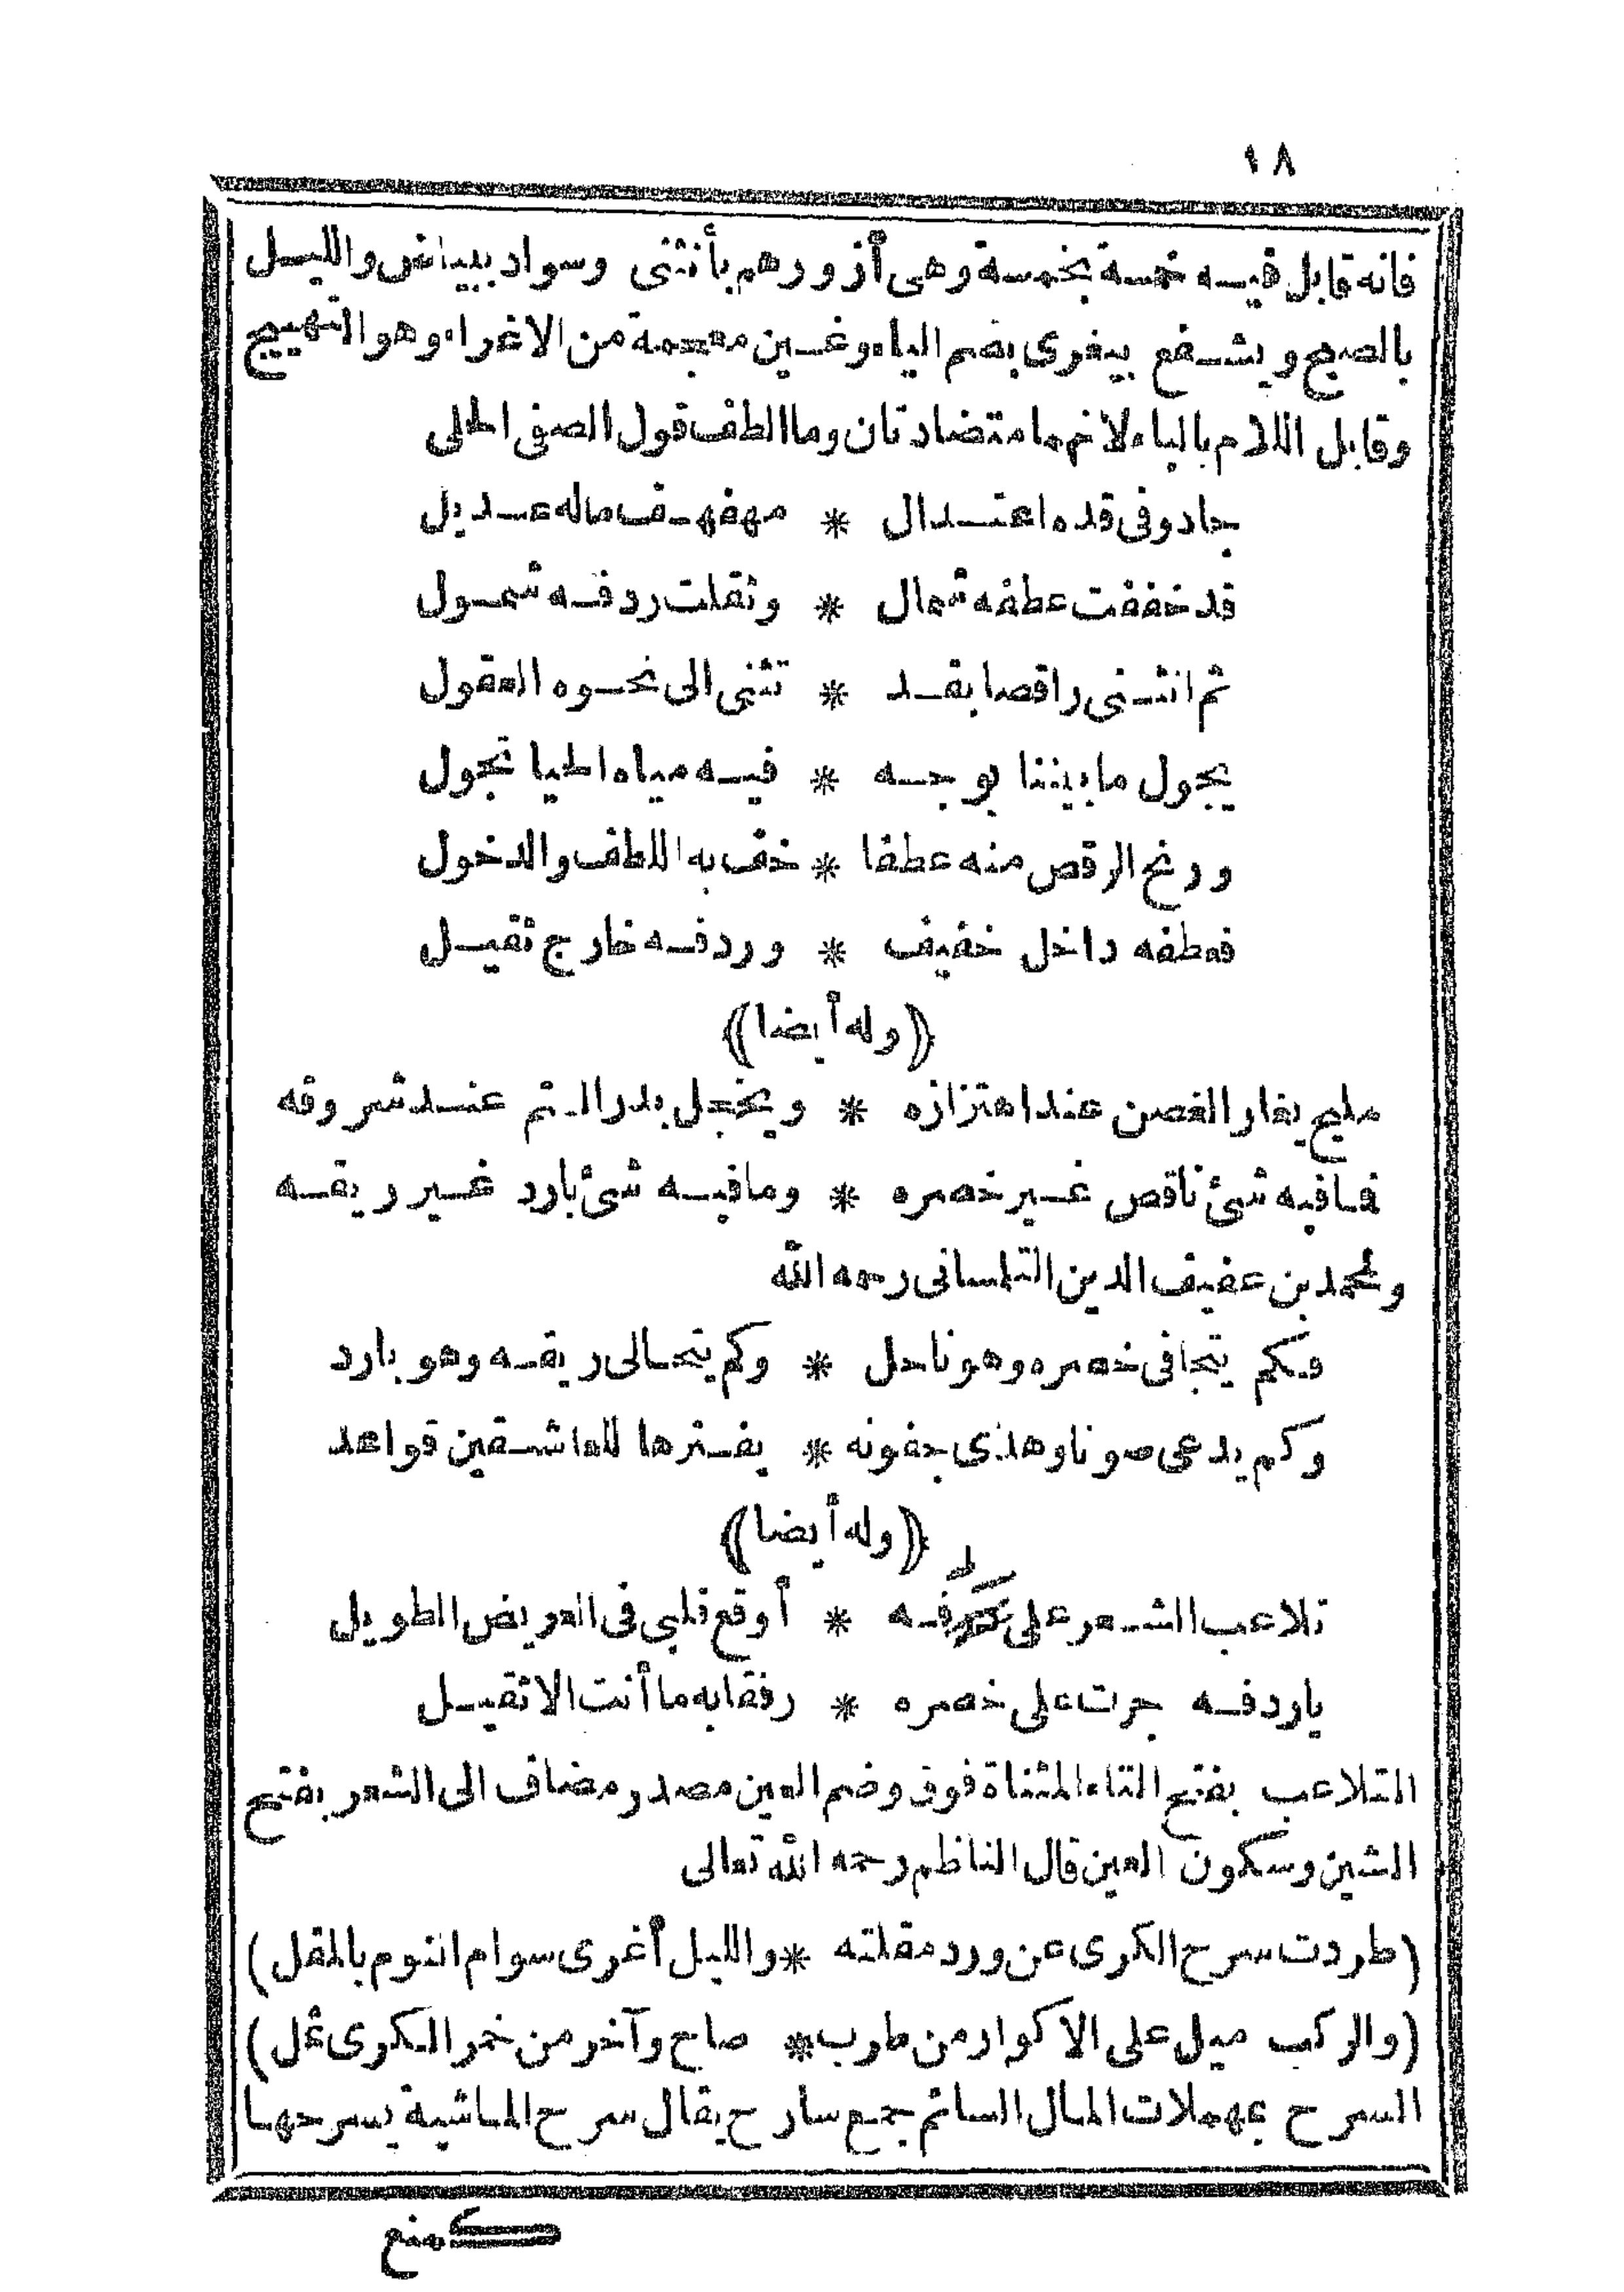 ١٨
فانه قابل فيه خمسة بخمسة وهى أزورهم بأنثنى وسواد ببياض والليل
بالصبح ويشفع بيغرى بضم الياء وغين معجمة من الاغراء وهو التهييج
وقابل اللام بالباء لانهما متضادتان وما الطف قول الصفى الحلى
جاد وفى قده اعتدال * مهفهف ماله عديل
قد خففت عطفه شمال * وثقلت ردفه شمول
ثم انثنى راقصا بقد * تثنى الى نحوه العقول
يجول ما بيننا بوجه * فيه مياه الحيا تجول
ورنح الرقص منه عطفا * خف به اللطف والدخول
فعطفه داخل خفيف * وردفه خارج ثقيل
﴿وله أيضا﴾
مليح يغار الغصن عند اهتزازه * ويخجل بدر التم عند شروقه
فما فيه شئ ناقص غير خصره * وما فيه شئ بارد غير ريقه
ولمحمد بن عفيف الدين التلمسانى رحمه الله
وكم يتجافى خصره وهو ناحل * وكم يتحالى ريقه وهو بارد
وكم يدعى صونا وهذى جفونه * بفترها للعاشقين قواعد
﴿وله أيضا﴾
تلاعب الشعر على ردفه * أوقع قلبى فى العريض الطويل
ياردفه جرت على خصره * رفقا به ما أنت الا ثقيل
التلاعب بفتح التاء المثناة فوق وضم العين مصدر مضاف الى الشعر بفتح
الشين وسكون العين قال الناظم رحمه الله تعالى
(طردت سرح الكرى عن ورد مقلته * والليل أغرى سوام النوم بالمقل)
(والركب ميل على الاكوار من طرب * صاح وآخر من خمر الكرى ثمل)
السرح بمهملات المال السائم جمع سارح يقال سرح الماشية يسرحها
كمنع